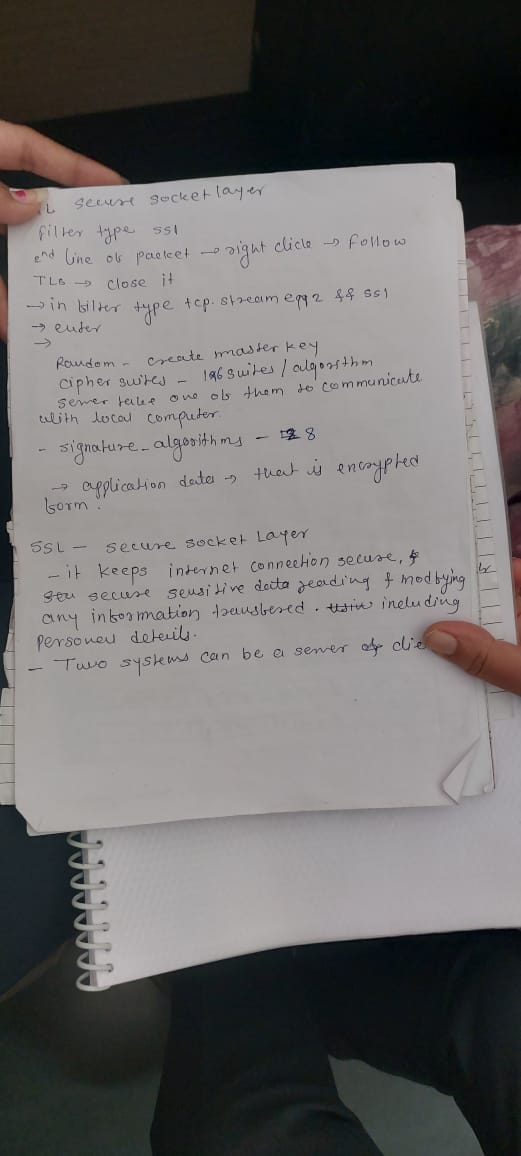 secure socket layer
filter type ssl
end line of packet → right click → Follow
TLS → close it
→ in filter type tcp.stream eqq 2 && ssl
→ enter
→
Random - create master key
Cipher suites - 196 suites / algorithm
server take one of them to communicate
with local computer.
- signature_algorithms - 8
→ application data → that is encrypted
form.
SSL - secure socket Layer
- it keeps internet connection secure, &
secure sensitive data reading & modfying
any information transfered. including
Personal details.
- Two systems can be a server clie